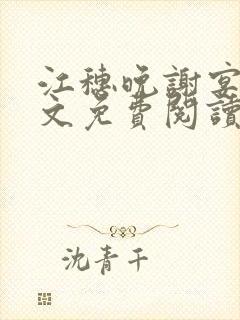 江穗晚謝宴
文免費閱讀
沈青千